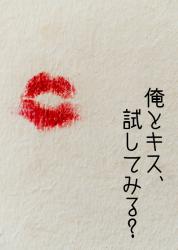 俺とキス、
試してみる?